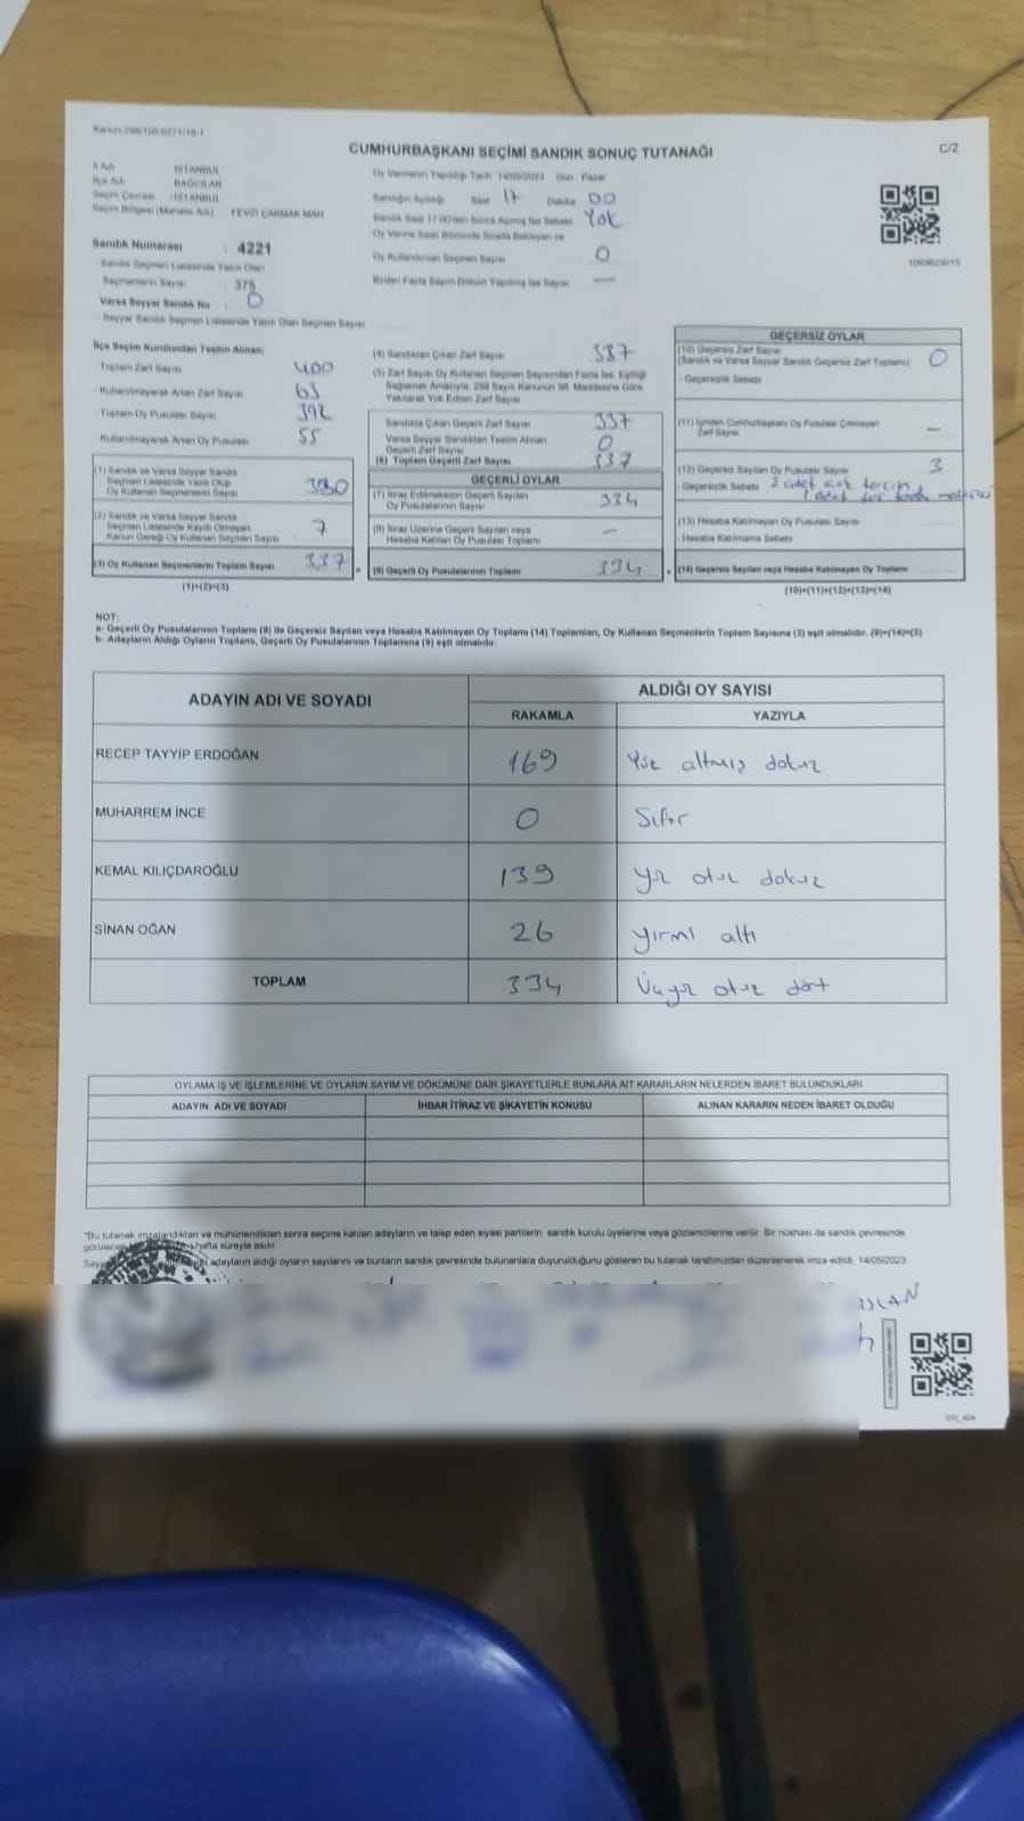 CUMHURBAŞKANI SEÇİMİ SANDIK SONUÇ TUTANAĞI
C/2
İl Adı İSTANBUL
İlçe Adı BAĞCILAR
Seçim Çevresi İSTANBUL
Seçim Bölgesi (Mahalle Adı) FEVZİ ÇAKMAK MAH
Sandık Numarası : 4221
Sandık Seçmen Listesinde Yazılı Olan
Seçmenlerin Sayısı : 378
Varsa Seyyar Sandık No : 0
Seyyar Sandık Seçmen Listesinde Yazılı Olan Seçmen Sayısı
Oy Vermenin Yapıldığı Tarih 14/05/2023 Gün Pazar
Sandığın Açıldığı Saat 17 Dakika 00
Yok
Oy Kullandırılan Seçmen Sayısı 0
Birden Fazla Sayım Döküm Yapılmış İse Sayısı —
İlçe Seçim Kurulundan Teslim Alınan:
Toplam Zarf Sayısı 400
Kullanılmayarak Artan Zarf Sayısı 63
Toplam Oy Pusulası Sayısı 392
Kullanılmayarak Artan Oy Pusulası 55
(1) Sandık ve Varsa Seyyar Sandık
Seçmen Listesinde Yazılı Olup
Oy Kullanan Seçmenlerin Sayısı 330
(2) Sandık ve Varsa Seyyar Sandık
Seçmen Listesinde Kaydı Olmayan
Kanun Gereği Oy Kullanan Seçmen Sayısı 7
(3) Oy Kullanan Seçmenlerin Toplam Sayısı 337
(1)+(2)=(3)
(4) Sandıktan Çıkan Zarf Sayısı 337
(5) Zarf Sayısı Oy Kullanan Seçmen Sayısından Fazla İse, Eşitliği
Sağlamak Amacıyla, 298 Sayılı Kanunun 98. Maddesine Göre
Yakılarak Yok Edilen Zarf Sayısı
Sandıkta Çıkan Geçerli Zarf Sayısı 337
Varsa Seyyar Sandıktan Teslim Alınan
Geçerli Zarf Sayısı 0
(6) Toplam Geçerli Zarf Sayısı 337
GEÇERLİ OYLAR
(7) İtiraz Edilmeksizin Geçerli Sayılan
Oy Pusulalarının Sayısı 334
(8) İtiraz Üzerine Geçerli Sayılan veya
Hesaba Katılan Oy Pusulası Toplamı —
(9) Geçerli Oy Pusulalarının Toplamı 334
GEÇERSİZ OYLAR
(10) Geçersiz Zarf Sayısı
(Sandık ve Varsa Seyyar Sandık Geçersiz Zarf Toplamı) 0
Geçersizlik Sebebi
(11) İçinden Cumhurbaşkanı Oy Pusulası Çıkmayan
Zarf Sayısı —
(12) Geçersiz Sayılan Oy Pusulası Sayısı 3
Geçersizlik Sebebi 2 adet çok tercih
1 adet
(13) Hesaba Katılmayan Oy Pusulası Sayısı
Hesaba Katılmama Sebebi
(14) Geçersiz Sayılan veya Hesaba Katılmayan Oy Toplamı
(10)+(11)+(12)+(13)=(14)
NOT:
a- Geçerli Oy Pusulalarının Toplamı (9) ile Geçersiz Sayılan veya Hesaba Katılmayan Oy Toplamı (14) Toplamları, Oy Kullanan Seçmenlerin Toplam Sayısına (3) eşit olmalıdır. (9)+(14)=(3)
b- Adayların Aldığı Oyların Toplamı, Geçerli Oy Pusulalarının Toplamına (9) eşit olmalıdır.
ADAYIN ADI VE SOYADI ALDIĞI OY SAYISI
RAKAMLA YAZIYLA
RECEP TAYYİP ERDOĞAN 169 Yüz altmış dokuz
MUHARREM İNCE 0 Sıfır
KEMAL KILIÇDAROĞLU 139 yüz otuz dokuz
SİNAN OĞAN 26 yirmi altı
TOPLAM 334 Üçyüz otuz dört
OYLAMA İŞ VE İŞLEMLERİNE VE OYLARIN SAYIM VE DÖKÜMÜNE DAİR ŞİKAYETLERLE BUNLARA AİT KARARLARIN NELERDEN İBARET BULUNDUKLARI
ADAYIN ADI VE SOYADI İHBAR İTİRAZ VE ŞİKAYETİN KONUSU ALINAN KARARIN NEDEN İBARET OLDUĞU
*Bu tutanak imzalandıktan ve mühürlendikten sonra seçime katılan adayların ve talep eden siyasi partilerin sandık kurulu üyelerine veya gözlemcilerine verilir. Bir nüshası da sandık çevresinde
hafta süreyle asılır.
adayların aldığı oyların sayılarını ve bunların sandık çevresinde bulunanlara duyurulduğunu gösteren bu tutanak tarafımızdan düzenlenerek imza edildi. 14/05/2023